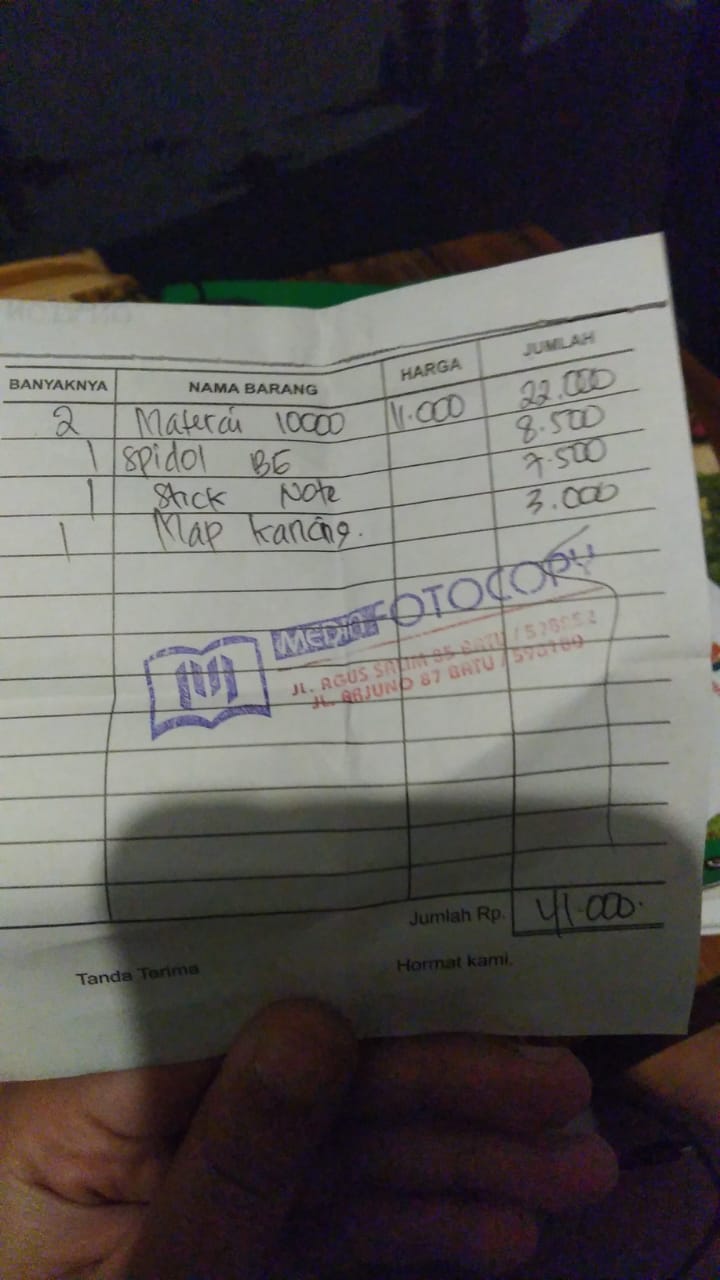 BANYAKNYA NAMA BARANG HARGA JUMLAH
2 Materai 10000 11.000 22.000
1 Spidol BG 8.500
1 Stick Note 7.500
1 Map kancing. 3.000
MEDIA FOTOCOPY
JL. AGUS SALIM 85 BATU /
JL. ARJUNO 87 BATU /
Jumlah Rp. 41.000.
Tanda Terima Hormat kami,